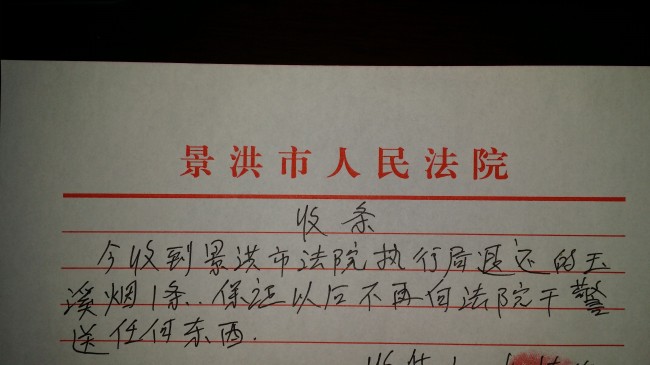 景洪市人民法院
收条
今收到景洪市法院执行局退还的玉
溪烟1条..保证以后不再向法院干警
送任何东西.